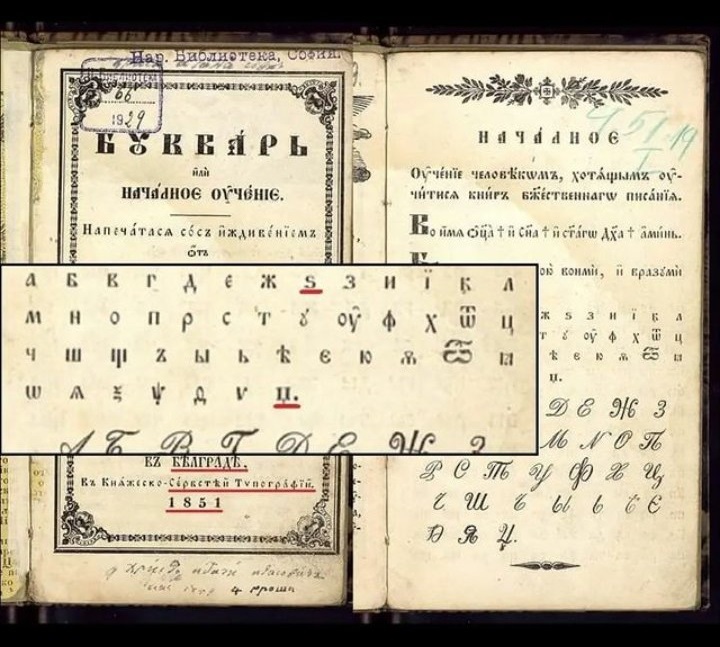 Нар. Библиотека, София.
66
1929
БꙊКВА́РЬ
и҆лѝ
НАЧА́ЛНОЕ ОУ҆ЧЕ́НЇЕ.
Напеча́тасѧ со́съ и҆ждиве́нїемъ
ѿтъ
а б в г д е ж ѕ з и ї к л
м н о п р с т ꙋ оу҆ ф х ѿ ц
ч ш щ ъ ы ь ѣ є ю ѫ
ѡ ѧ ѯ ѱ ѳ ѵ џ.
А Б В Г Д Е Ж З
ВЪ БѢЛГРА́ДѢ.
Въ Кнѧ́жеско-Се́рбстѣй Тѷпогра́фїи.
1851
4 гроша
НАЧА́ЛНОЕ
Оу҆че́нїе человѣ́кѡмъ, хотѧ́щымъ оу҆-
чи́тисѧ кни́гъ бж҃е́ственнагѡ писа́нїѧ.
Во и҆́мѧ ѻ҆ц҃а̀ † и҆ сн҃а † и҆ ст҃а́гѡ дх҃а † а҆ми́нь.
вонмѝ, и҆ вразꙋмѝ
ж ѕ з и ї к л
т ꙋ оу҆ ф х ѿ ц
ѣ є ю ѫ
џ.
Д Е Ж З
М N О П
Р С Т У Ф Х Ц
Ч Ш Ъ Ы Ь Ѣ Є
Ю Я Џ.